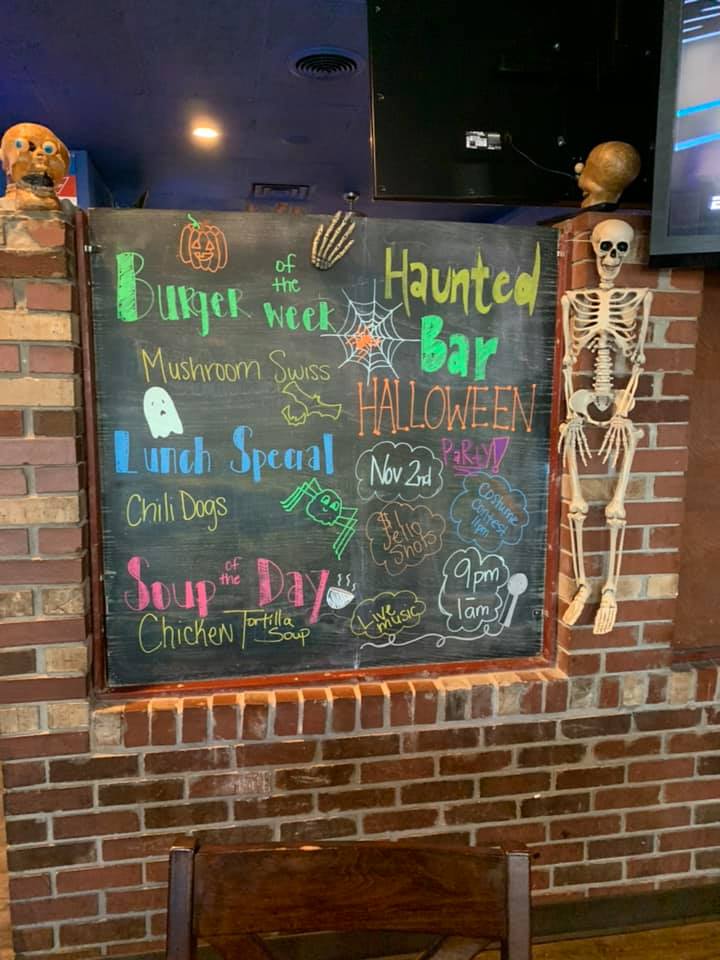 Burger of the week
Mushroom Swiss
Lunch Special
Chili Dogs
Soup of the Day
Chicken Tortilla Soup
Haunted
Bar
HALLOWEEN
PaRtY!
Nov 2nd
Costume
Contest
11pm
Jello
Shots
9pm
-
1am
Live
music